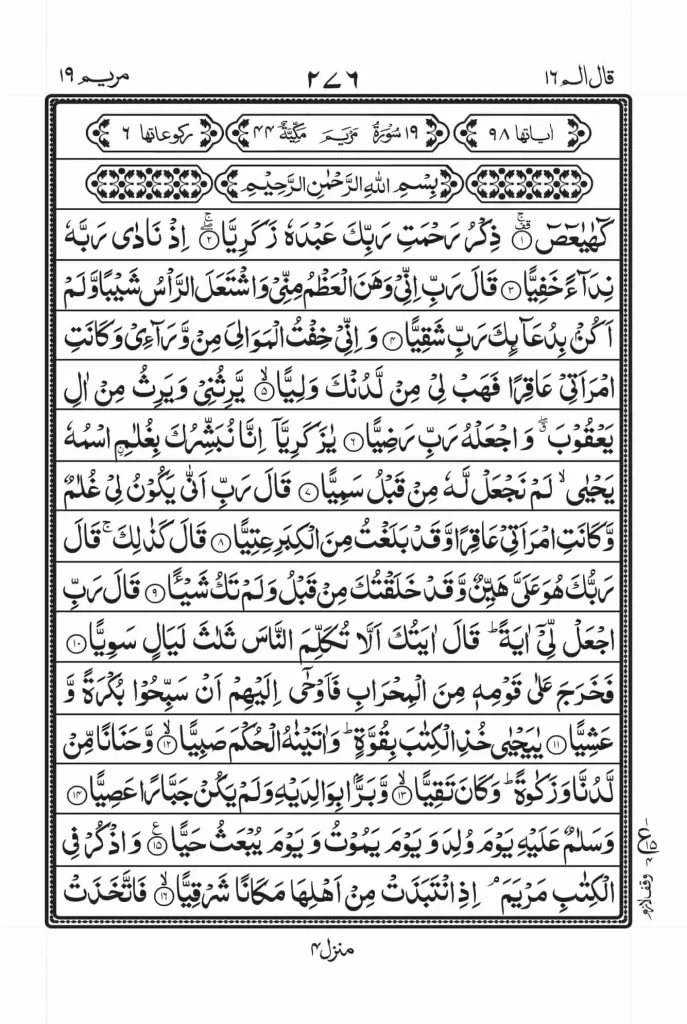 قال الم ١٦ ٢٧٦ مریم ١٩
اٰیاتها ٩٨ ١٩ سُوْرَةُ مَرْیَمَ مَكِّیَّةٌ ٤٤ ركوعاتها ٦
بِسْمِ اللّٰهِ الرَّحْمٰنِ الرَّحِیْمِ
كٓهٰیٰعٓصٓ ۚ۫ۖ‏﴿۱﴾ ذِكْرُ رَحْمَتِ رَبِّكَ عَبْدَهٗ زَكَرِیَّا ۚۖ‏﴿۲﴾ اِذْ نَادٰی رَبَّهٗ
نِدَآءً خَفِیًّا ﴿۳﴾ قَالَ رَبِّ اِنِّیْ وَهَنَ الْعَظْمُ مِنِّیْ وَ اشْتَعَلَ الرَّاْسُ شَیْبًا وَّ لَمْ
اَكُنْۢ بِدُعَآىِٕكَ رَبِّ شَقِیًّا ﴿۴﴾ وَ اِنِّیْ خِفْتُ الْمَوَالِیَ مِنْ وَّرَآءِیْ وَ كَانَتِ
امْرَاَتِیْ عَاقِرًا فَهَبْ لِیْ مِنْ لَّدُنْكَ وَلِیًّا ۙ‏﴿۵﴾ یَّرِثُنِیْ وَ یَرِثُ مِنْ اٰلِ
یَعْقُوْبَ ۖۗ وَ اجْعَلْهُ رَبِّ رَضِیًّا ﴿۶﴾ یٰزَكَرِیَّاۤ اِنَّا نُبَشِّرُكَ بِغُلٰمِ ِ۟اسْمُهٗ
یَحْیٰی ۙ لَمْ نَجْعَلْ لَّهٗ مِنْ قَبْلُ سَمِیًّا ﴿۷﴾ قَالَ رَبِّ اَنّٰی یَكُوْنُ لِیْ غُلٰمٌ
وَّ كَانَتِ امْرَاَتِیْ عَاقِرًا وَّ قَدْ بَلَغْتُ مِنَ الْكِبَرِ عِتِیًّا ﴿۸﴾ قَالَ كَذٰلِكَ ۚ قَالَ
رَبُّكَ هُوَ عَلَیَّ هَیِّنٌ وَّ قَدْ خَلَقْتُكَ مِنْ قَبْلُ وَ لَمْ تَكُ شَیْـًٔا ﴿۹﴾ قَالَ رَبِّ
اجْعَلْ لِّیْۤ اٰیَةً ؕ قَالَ اٰیَتُكَ اَلَّا تُكَلِّمَ النَّاسَ ثَلٰثَ لَیَالٍ سَوِیًّا ﴿۱۰﴾
فَخَرَجَ عَلٰی قَوْمِهٖ مِنَ الْمِحْرَابِ فَاَوْحٰۤی اِلَیْهِمْ اَنْ سَبِّحُوْا بُكْرَةً وَّ
عَشِیًّا ﴿۱۱﴾ یٰیَحْیٰی خُذِ الْكِتٰبَ بِقُوَّةٍ ؕ وَ اٰتَیْنٰهُ الْحُكْمَ صَبِیًّا ۙ‏﴿۱۲﴾ وَّ حَنَانًا مِّنْ
لَّدُنَّا وَ زَكٰوةً ؕ وَ كَانَ تَقِیًّا ۙ‏﴿۱۳﴾ وَّ بَرًّۢا بِوَالِدَیْهِ وَ لَمْ یَكُنْ جَبَّارًا عَصِیًّا ﴿۱۴﴾
وَ سَلٰمٌ عَلَیْهِ یَوْمَ وُلِدَ وَ یَوْمَ یَمُوْتُ وَ یَوْمَ یُبْعَثُ حَیًّا ﴿۱۵﴾ ع وَ اذْكُرْ فِی
الْكِتٰبِ مَرْیَمَ ۘ اِذِ انْتَبَذَتْ مِنْ اَهْلِهَا مَكَانًا شَرْقِیًّا ۙ‏﴿۱۶﴾ فَاتَّخَذَتْ
وقف لازم
منزل ٤